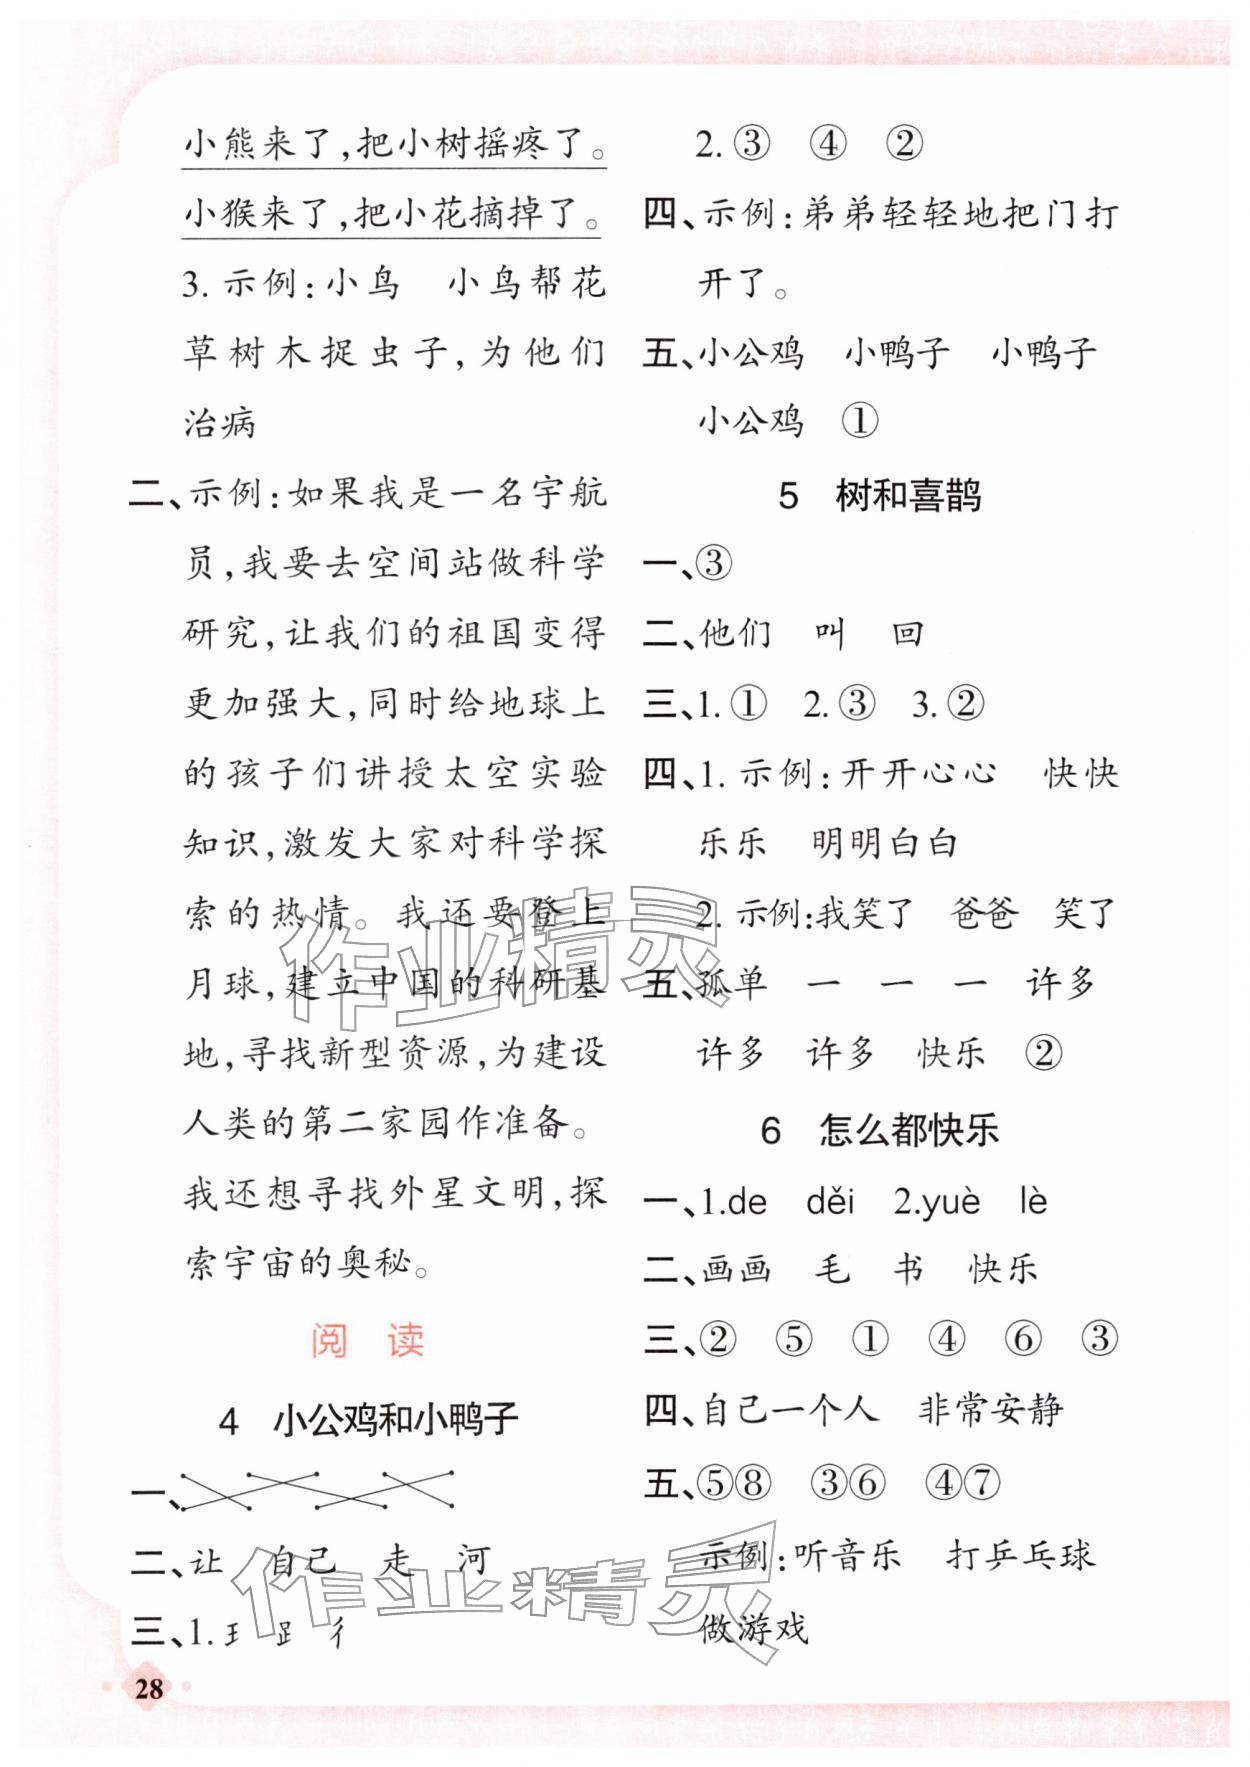 小熊来了,把小树摇疼了。
小猴来了,把小花摘掉了。
3. 示例:小鸟　小鸟帮花
草树木捉虫子,为他们
治病
二、示例:如果我是一名宇航
员,我要去空间站做科学
研究,让我们的祖国变得
更加强大,同时给地球上
的孩子们讲授太空实验
知识,激发大家对科学探
索的热情。我还要登上
月球,建立中国的科研基
地,寻找新型资源,为建设
人类的第二家园作准备。
我还想寻找外星文明,探
索宇宙的奥秘。
阅 读
4　小公鸡和小鸭子
一、
二、让　自己　走　河
三、1.𤣩　𧾷　彳
2. ③　④　②
四、示例:弟弟轻轻地把门打
开了。
五、小公鸡　小鸭子　小鸭子
小公鸡　①
5　树和喜鹊
一、③
二、他们　叫　回
三、1. ①　2. ③　3. ②
四、1. 示例:开开心心　快快
乐乐　明明白白
2. 示例:我笑了　爸爸　笑了
五、孤单　一　一　一　许多
许多　许多　快乐　②
6　怎么都快乐
一、1.de　děi　2.yuè　lè
二、画画　毛　书　快乐
三、②　⑤　①　④　⑥　③
四、自己一个人　非常安静
五、⑤⑧　③⑥　④⑦
示例:听音乐　打乒乓球
做游戏
28
作业精灵
作业精灵